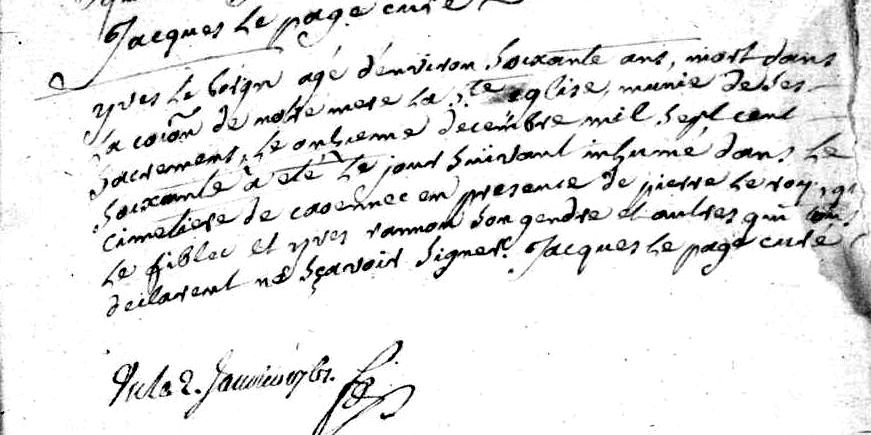 Jacques Le page curé
yves Le borgn agé d'environ soixante ans, mort dans
La coion de notre mere la Ste eglise, munie de ses
sacrement, Le onzieme decembre mil sept cent
soixante a eté Le jour suivant inhumé dans Le
cimetiere de caoennec en presence de pierre Le roy,
Le fiblec et yves rannou son gendre et autres qui
declarent ne sçavoir signer. Jacques Le page curé
Vu le 2. Janvier 1761.